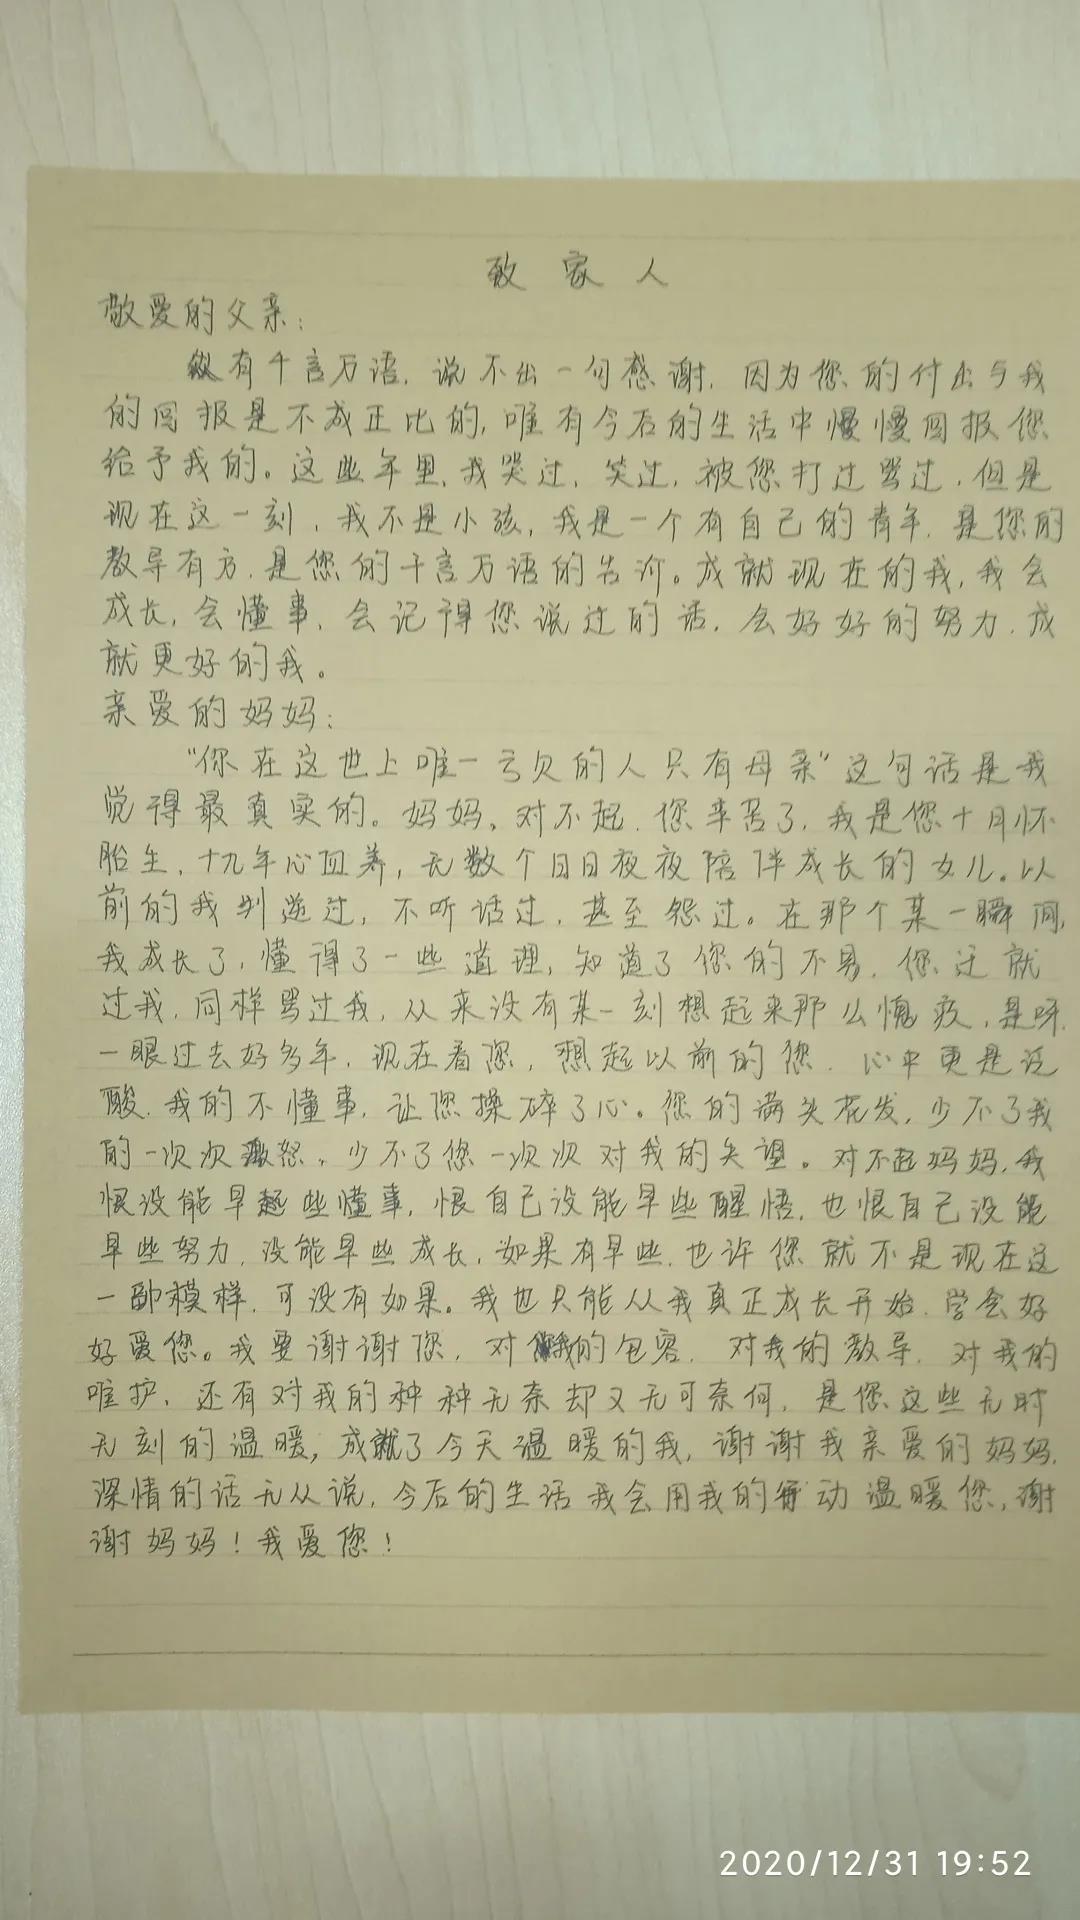 致家人
敬爱的父亲:
有千言万语,说不出一句感谢,因为您的付出与我
的回报是不成正比的,唯有今后的生活中慢慢回报您
给予我的。这些年里,我哭过,笑过,被您打过骂过,但是
现在这一刻,我不是小孩,我是一个有自己的青年,是您的
教导有方,是您的千言万语的告诉。成就现在的我,我会
成长,会懂事,会记得您说过的话,会好好的努力,成
就更好的我。
亲爱的妈妈:
“你在这世上唯一亏欠的人只有母亲”这句话是我
觉得最真实的。妈妈,对不起,您辛苦了,我是您十月怀
胎生,十九年心血养,无数个日日夜夜陪伴成长的女儿。以
前的我判逆过,不听话过,甚至怨过。在那个某一瞬间,
我成长了,懂得了一些道理,知道了您的不易,您迁就
过我,同样骂过我,从来没有某一刻想起来那么愧疚,是呀,
一眼过去好多年,现在看您,想起以前的您,心中更是
酸,我的不懂事,让您操碎了心。您的满头花发,少不了我
的一次次激怒,少不了您一次次对我的失望。对不起妈妈,我
恨没能早些懂事,恨自己没能早些醒悟,也恨自己没能
早些努力,没能早些成长,如果有早些,也许您就不是现在这
一副模样,可没有如果。我也只能从我真正成长开始,学会好
好爱您。我要谢谢您,对我的包容,对我的教导,对我的
唯护,还有对我的种种无奈却又无可奈何,是您这些无时
无刻的温暖,成就了今天温暖的我,谢谢我亲爱的妈妈,
深情的话无从说,今后的生活我会用我的行动温暖您,谢
谢妈妈!我爱您!
2020/12/31 19:52